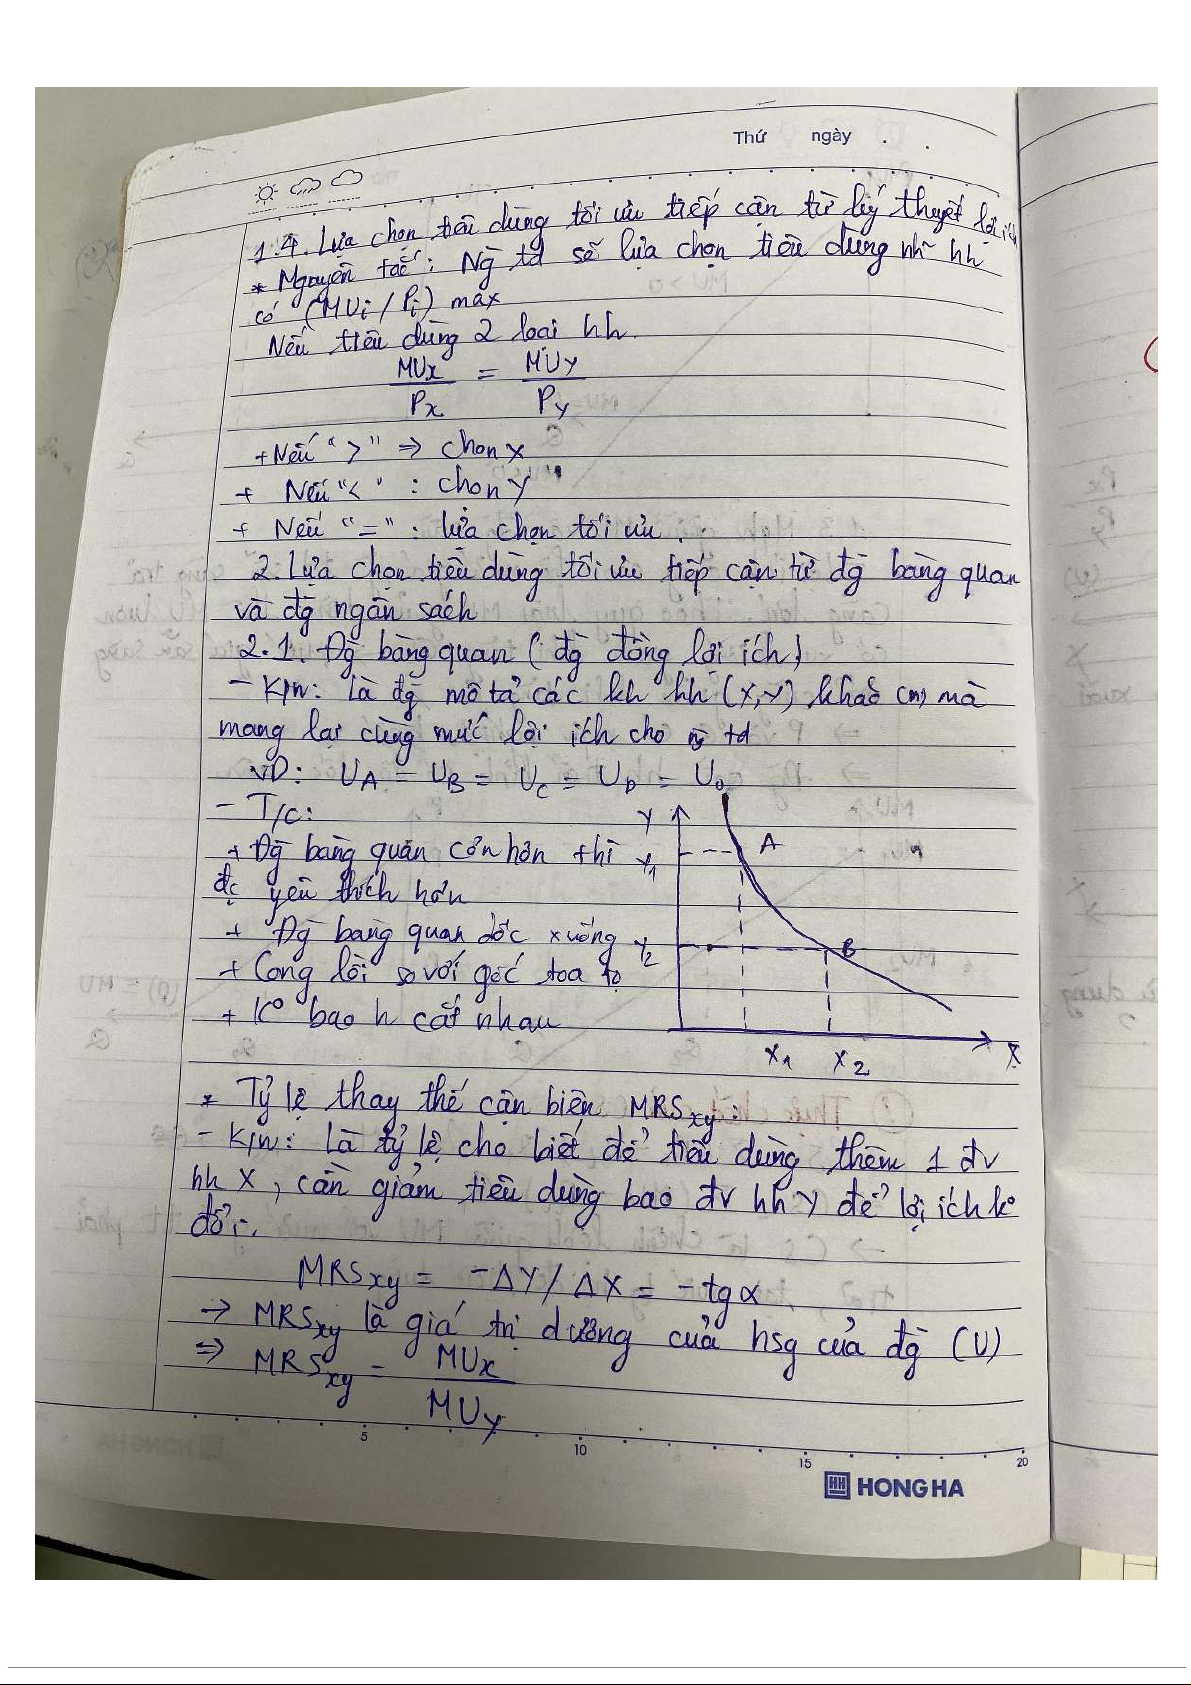 Thứ ngày . .
1.4. Lựa chọn tiêu dùng tối ưu tiếp cận từ lý thuyết lợi ích
* Nguyên tắc: Ng td sẽ lựa chọn tiêu dùng nh~ hh
có (MUi / Pi) max
Nếu tiêu dùng 2 loại hh.
MUx / Px = MUy / Py
+ Nếu ">" => chọn X
+ Nếu "<" : chọn Y
+ Nếu "=" : lựa chọn tối ưu.
2. Lựa chọn tiêu dùng tối ưu tiếp cận từ đg bàng quan
và đg ngân sách
2.1. Đg bàng quan (đg đồng lợi ích)
- K/n: là đg mô tả các kh hh (X,Y) khác mà
mang lại cùng mức lợi ích cho ng td
VD: UA = UB = UC = UD = U0
- T/c:
+ Đg bàng quan cơn hơn thì
đc yêu thích hơn
+ Đg bàng quan dốc xuống
+ Cong lồi so với gốc toạ độ
+ K° bao h cắt nhau
Y
Y1 A
Y2 B
X1 X2 X
* Tỷ lệ thay thế cận biên MRSxy:
- K/n: Là tỷ lệ cho biết để tiêu dùng thêm 1 đv
hh X, cần giảm tiêu dùng bao đv hh Y để lợi ích k°
đổi.
MRSxy = -ΔY/ΔX = -tgα
→ MRSxy là giá trị dương của hsg của đg (U)
=> MRSxy = MUx / MUy
5 10 15 20
HH HONG HA